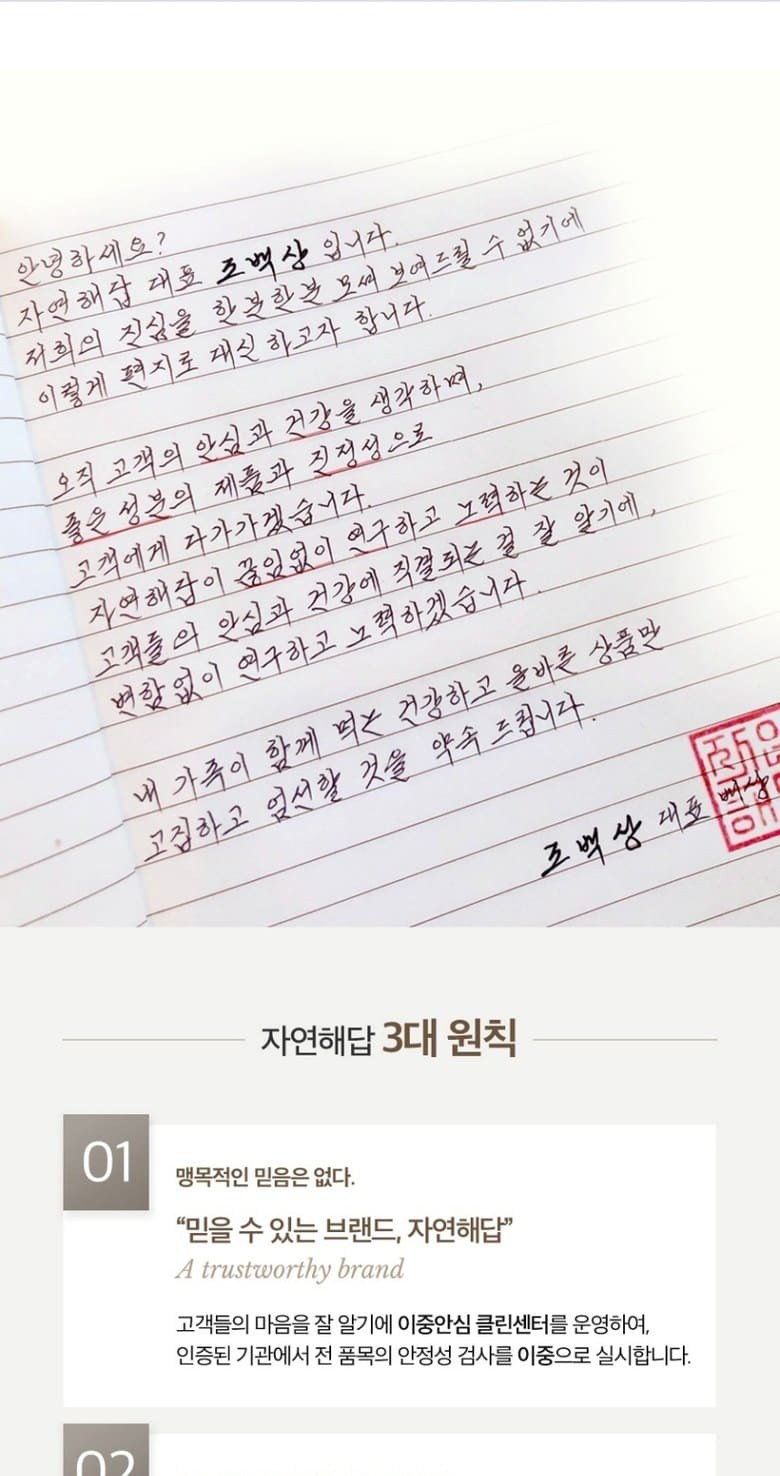 안녕하세요?
자연해답 대표 조백상 입니다.
저희의 진심을 한분한분 모써 보여드릴 수 없기에
이렇게 편지로 대신 하고자 합니다.
오직 고객의 안심과 건강을 생각하며,
좋은 성분의 제품과 진정성으로
고객에게 다가가겠습니다.
자연해답이 끊임없이 연구하고 노력하는 것이
고객들의 안심과 건강에 직결되는 걸 잘 알기에,
변함없이 연구하고 노력하겠습니다.
내 가족이 함께 먹는 건강하고 올바른 상품만
고집하고 엄선할 것을 약속 드립니다.
조백상 대표 백상
자연해답 3대 원칙
01
맹목적인 믿음은 없다.
“믿을 수 있는 브랜드, 자연해답”
A trustworthy brand
고객들의 마음을 잘 알기에 이중안심 클린센터를 운영하여,
인증된 기관에서 전 품목의 안정성 검사를 이중으로 실시합니다.
02